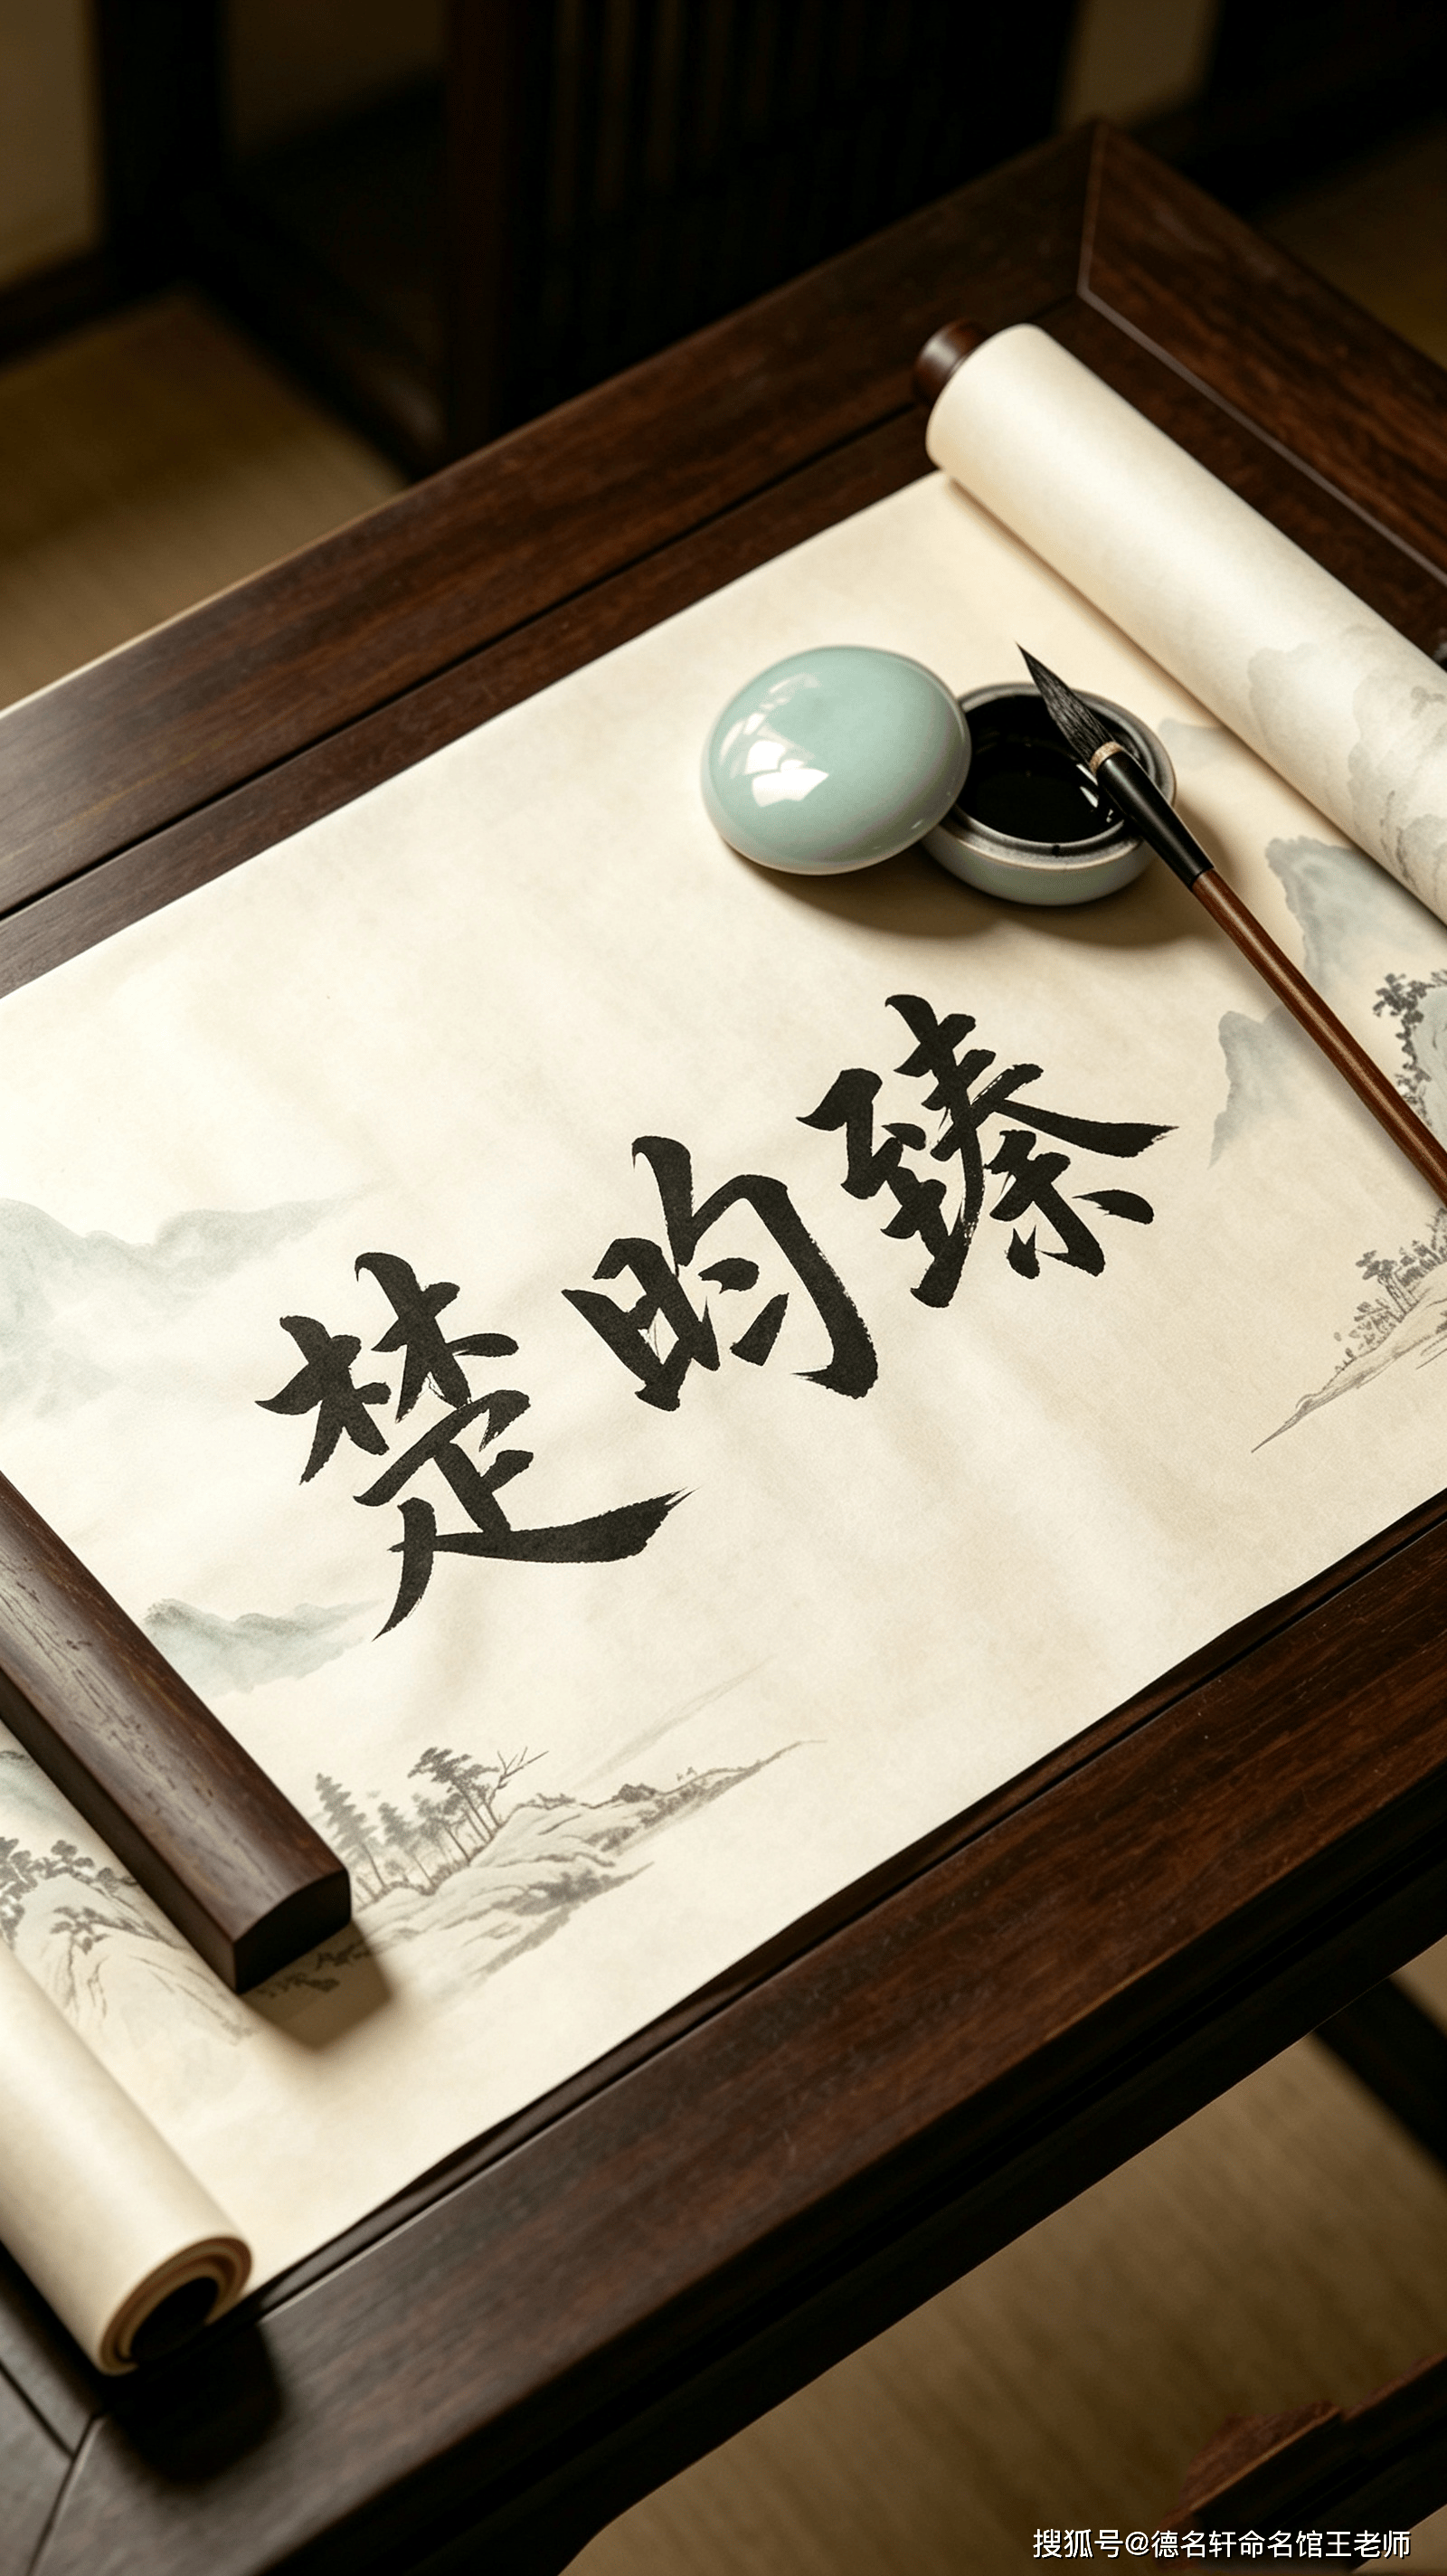 楚昀臻
搜狐号@德名轩命名馆王老师